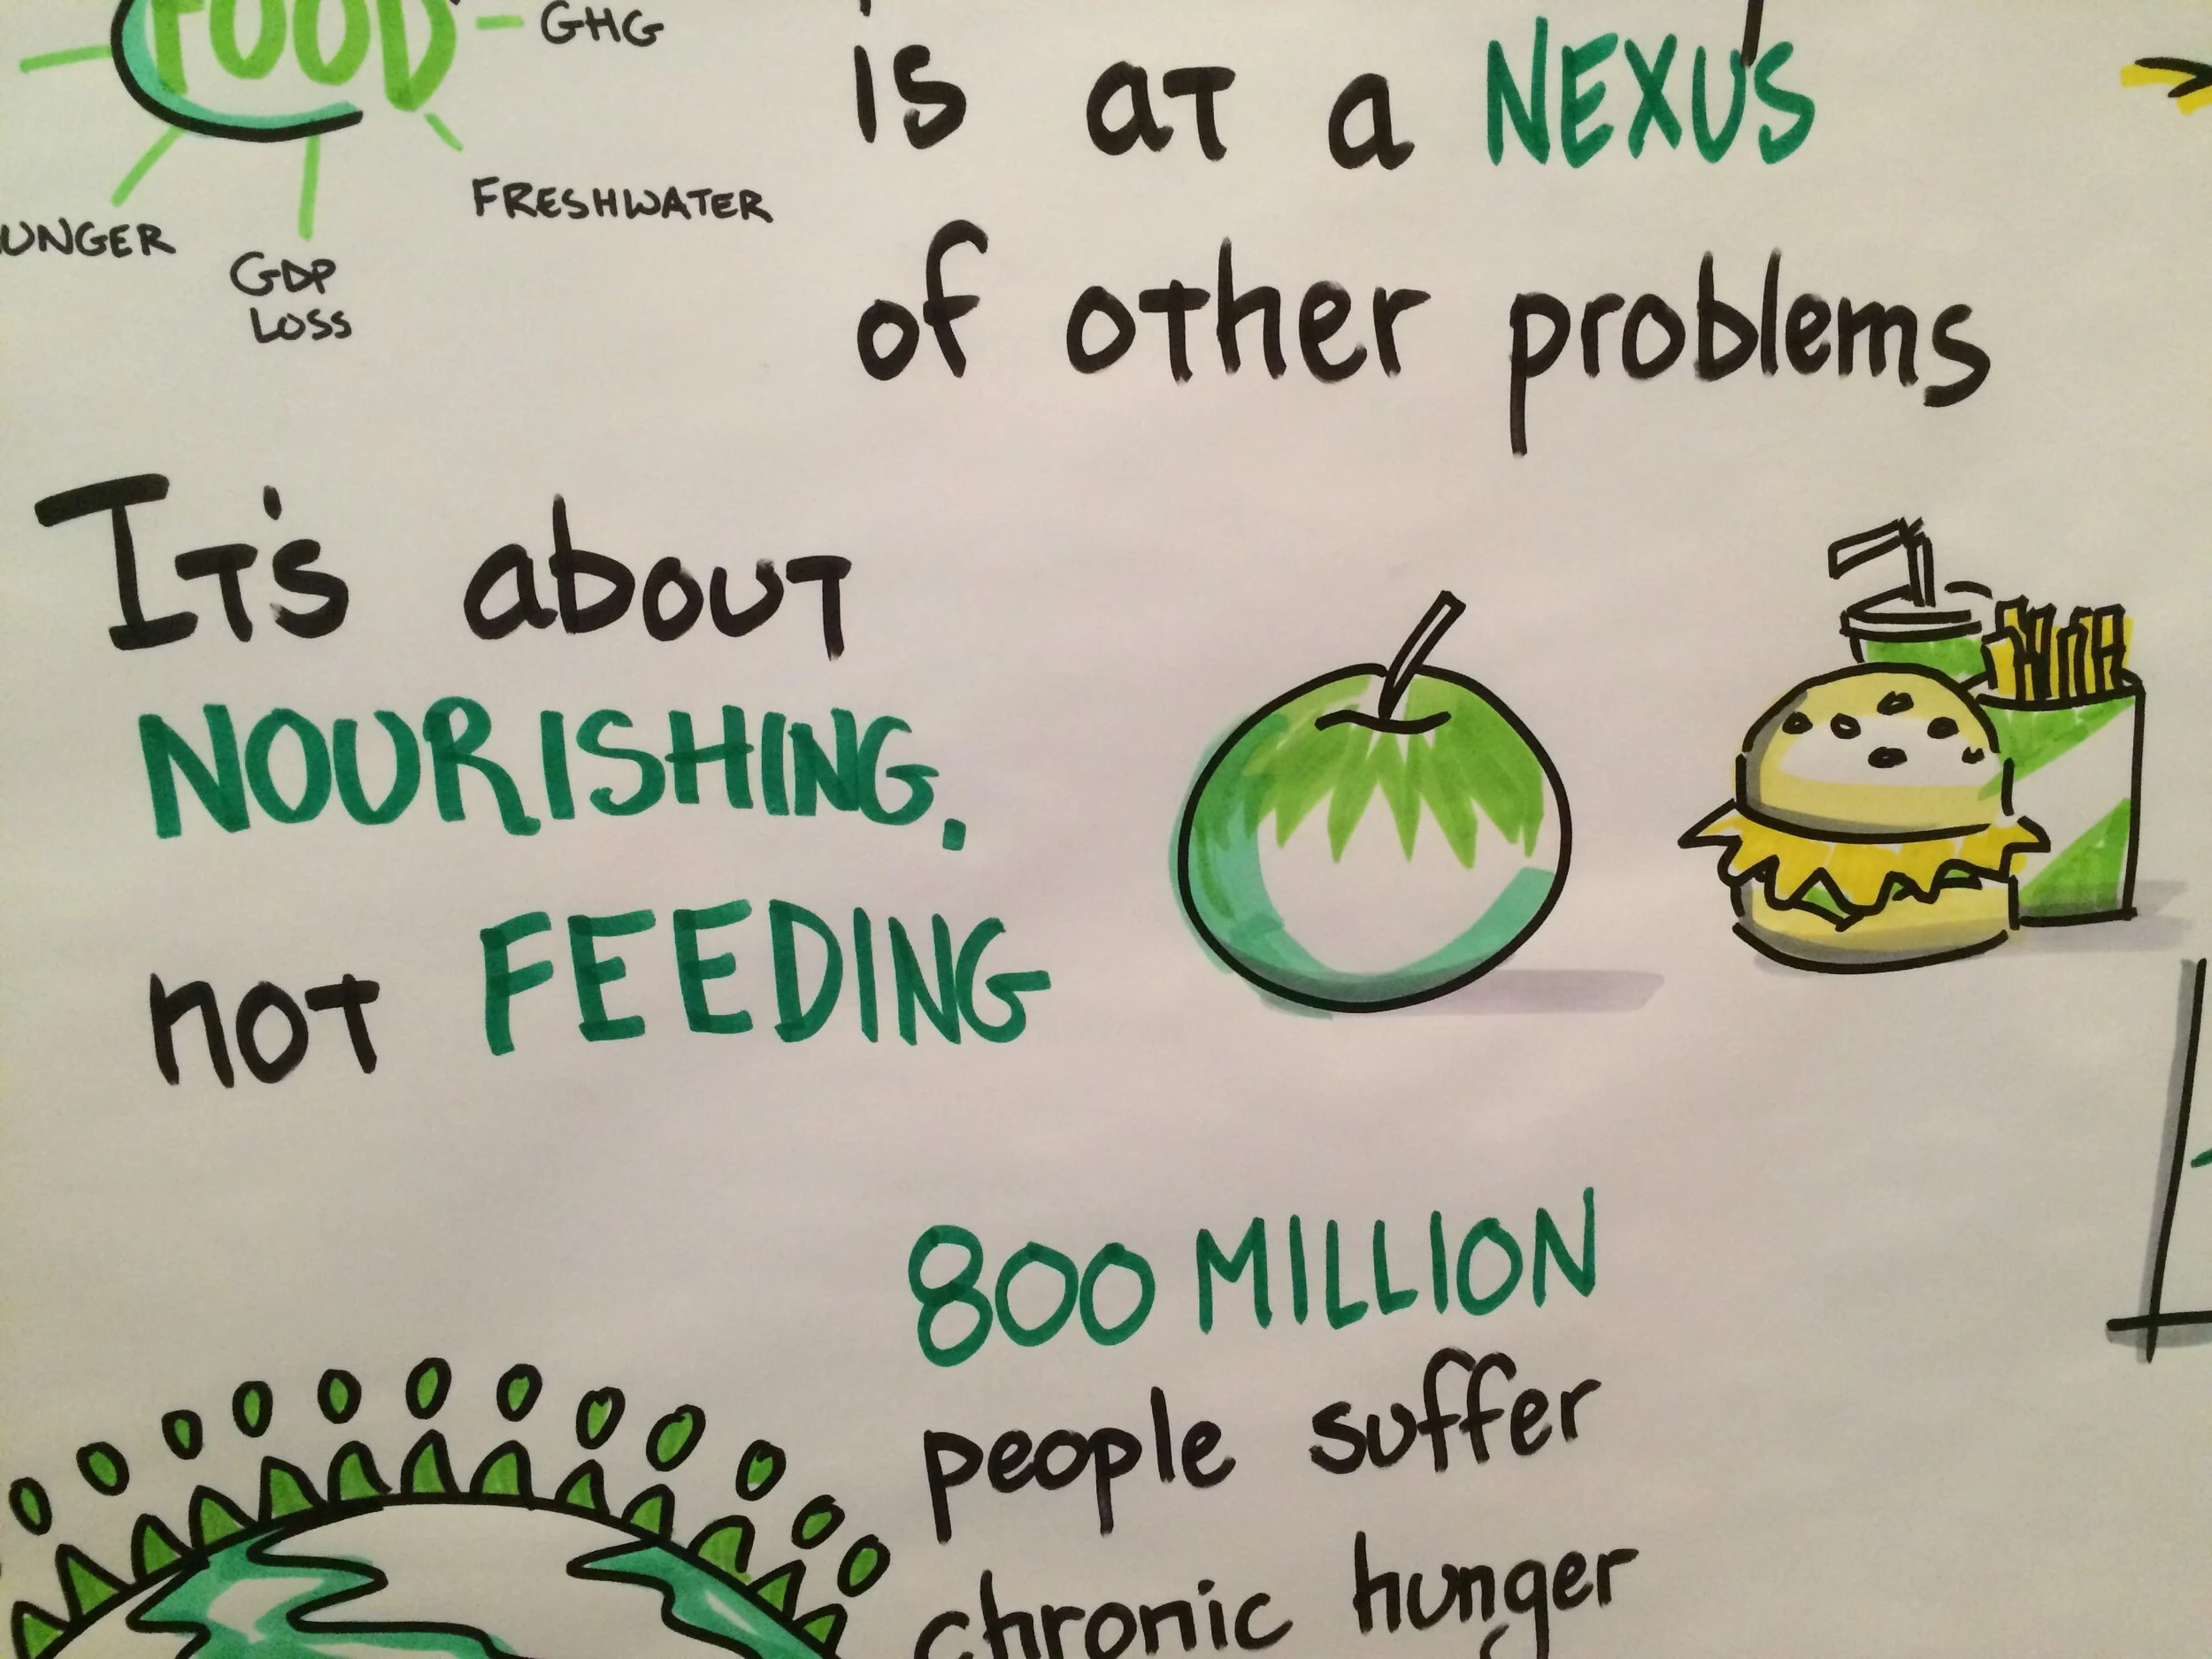 FOOD
GHG
FRESHWATER
GDP
LOSS
is at a NEXUS
of other problems
It's about
NOURISHING,
not FEEDING
800 MILLION
people suffer
chronic hunger